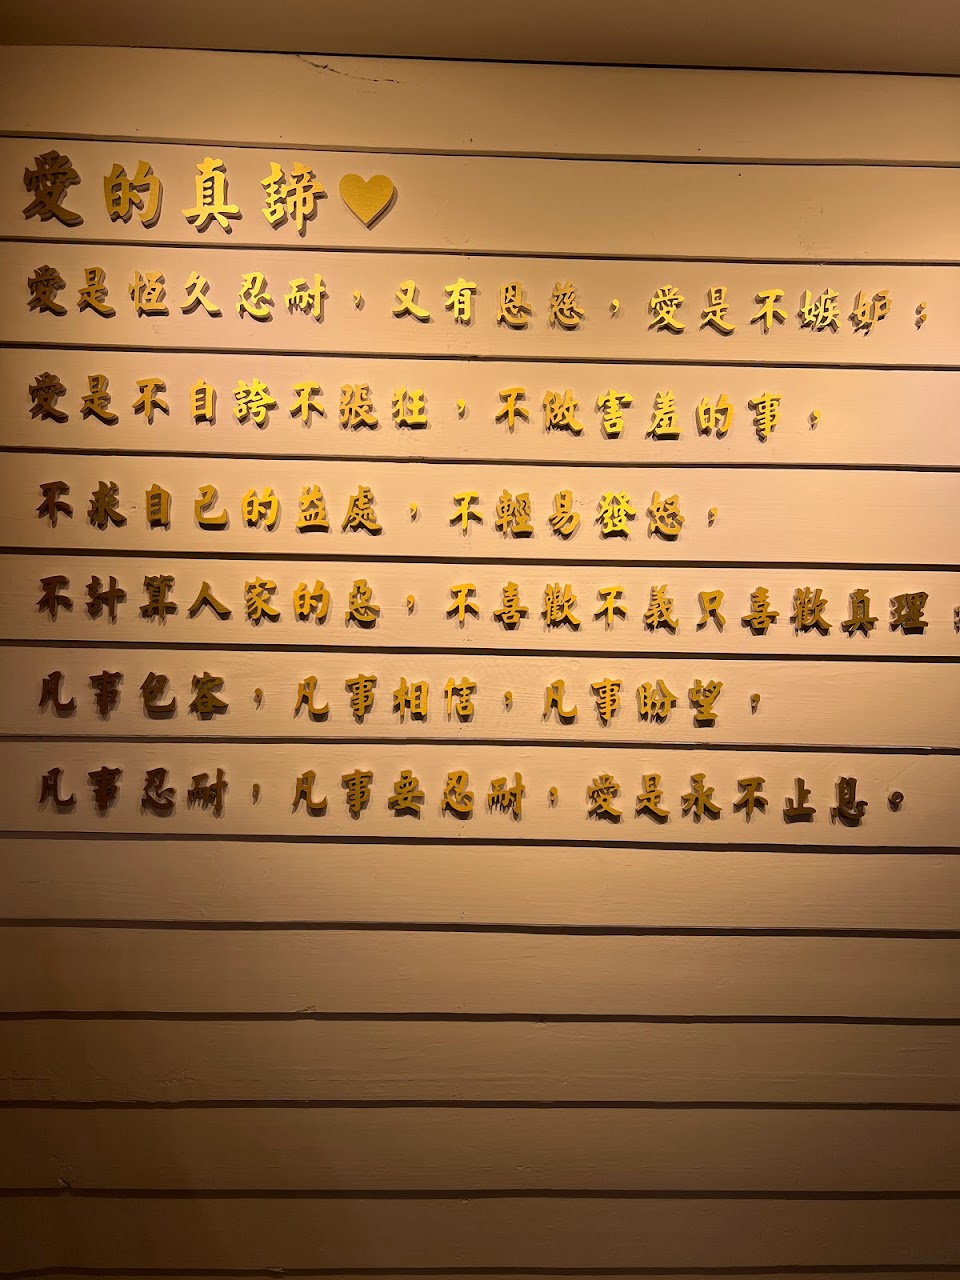 愛的真諦♥
愛是恆久忍耐，又有恩慈，愛是不嫉妒；
愛是不自誇不張狂，不做害羞的事，
不求自己的益處，不輕易發怒；
不計算人家的惡，不喜歡不義只喜歡真理；
凡事包容，凡事相信，凡事盼望，
凡事忍耐，凡事要忍耐，愛是永不止息。